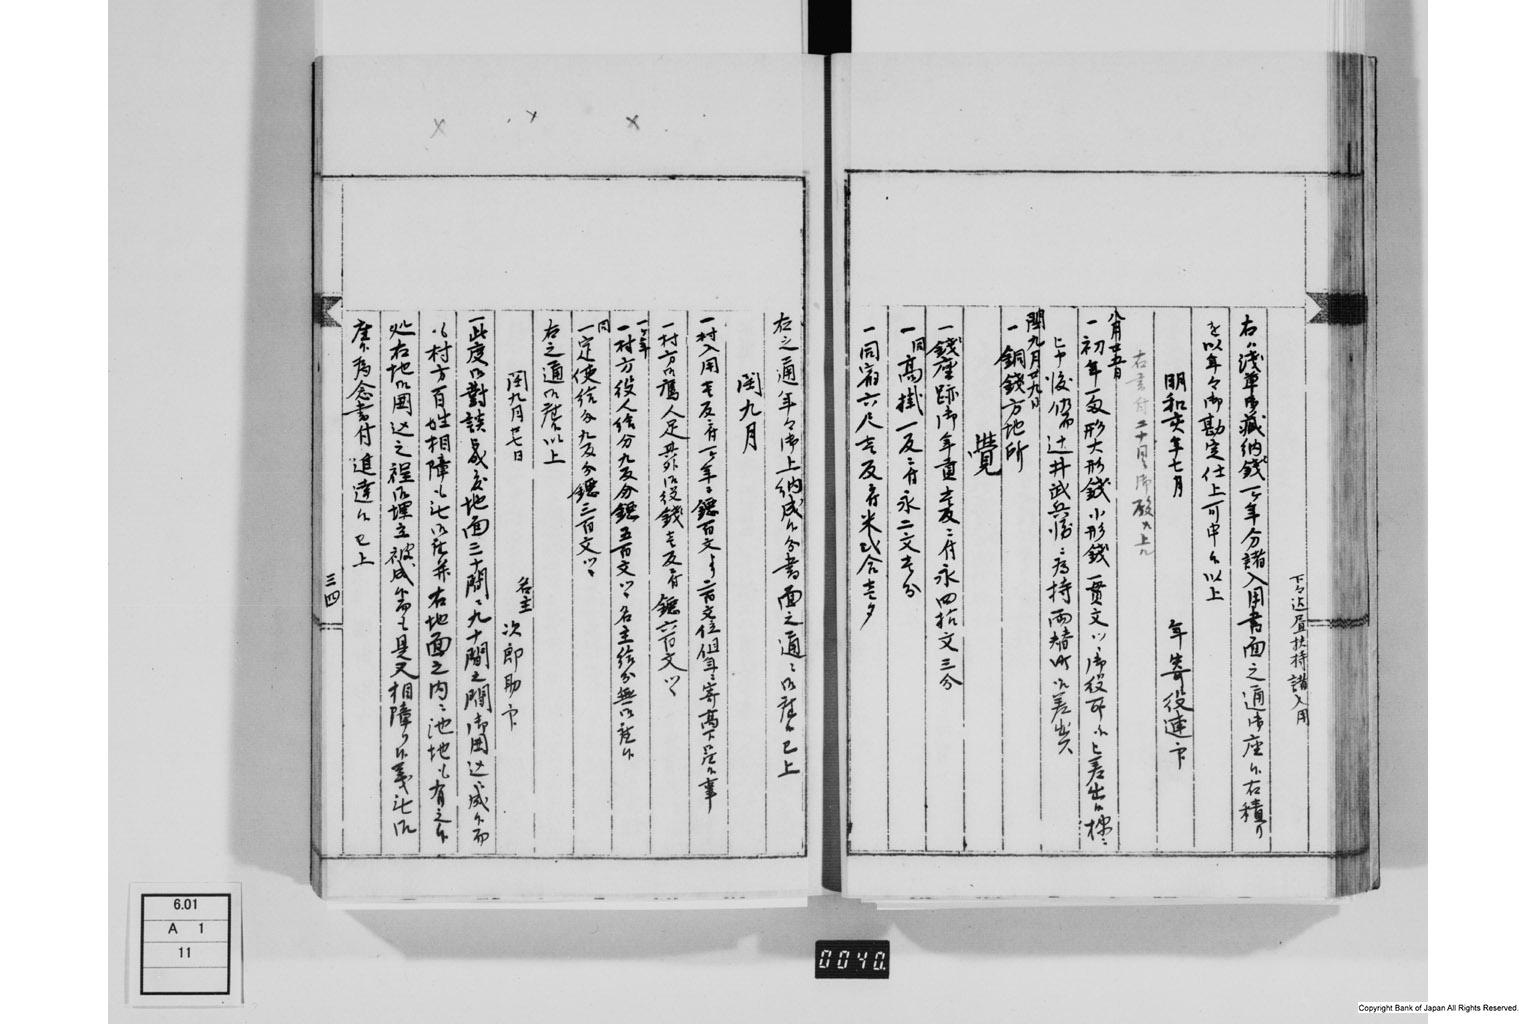 下々迄雇扶持諸入用
右ハ浅草御蔵納銭一ケ年分諸入用書面之通御座候右積り
を以年々御勘定仕上可申候以上
明和亥年七月 年寄役連印
右書付二十月御殿へ上ル
八月廿五日
一初年一両形大形銭小形銭一貫文ツヽ御役所へ差出候様ニ
辻井武兵衛
閏九月廿九日
一銅銭方地所
覚
一銭座跡御年貢壱反ニ付永四拾文三分
一同高掛一反ニ付永二文壱分
一同宿六尺壱反ニ付米弐合壱夕
右之通年々御上納成候分書面之通ニ御座候已上
閏九月
一村入用壱反ニ付一ケ年ニ鐚百文より二百文位
一村方御鷹人足其外御役銭壱反ニ付鐚六百文ツヽ
一ケ年
一村方役人給分九反分鐚五百文ツヽ名主給分無御座候
同
一定使給分九反分鐚三百文ツヽ
右之通御座候以上
閏九月廿七日
名主 次郎助印
一此度御対談
地面三十間ニ九十間之間御囲込ニ成候而
も村方百姓相障も無御座并右地面之内ニ池地も有之候
処右地御囲込之程御埋立被成候而も是又相障り候義無御
座候為念書付進達候已上
三四
6.01
A 1
11
0040.
Copyright Bank of Japan All Rights Reserved.